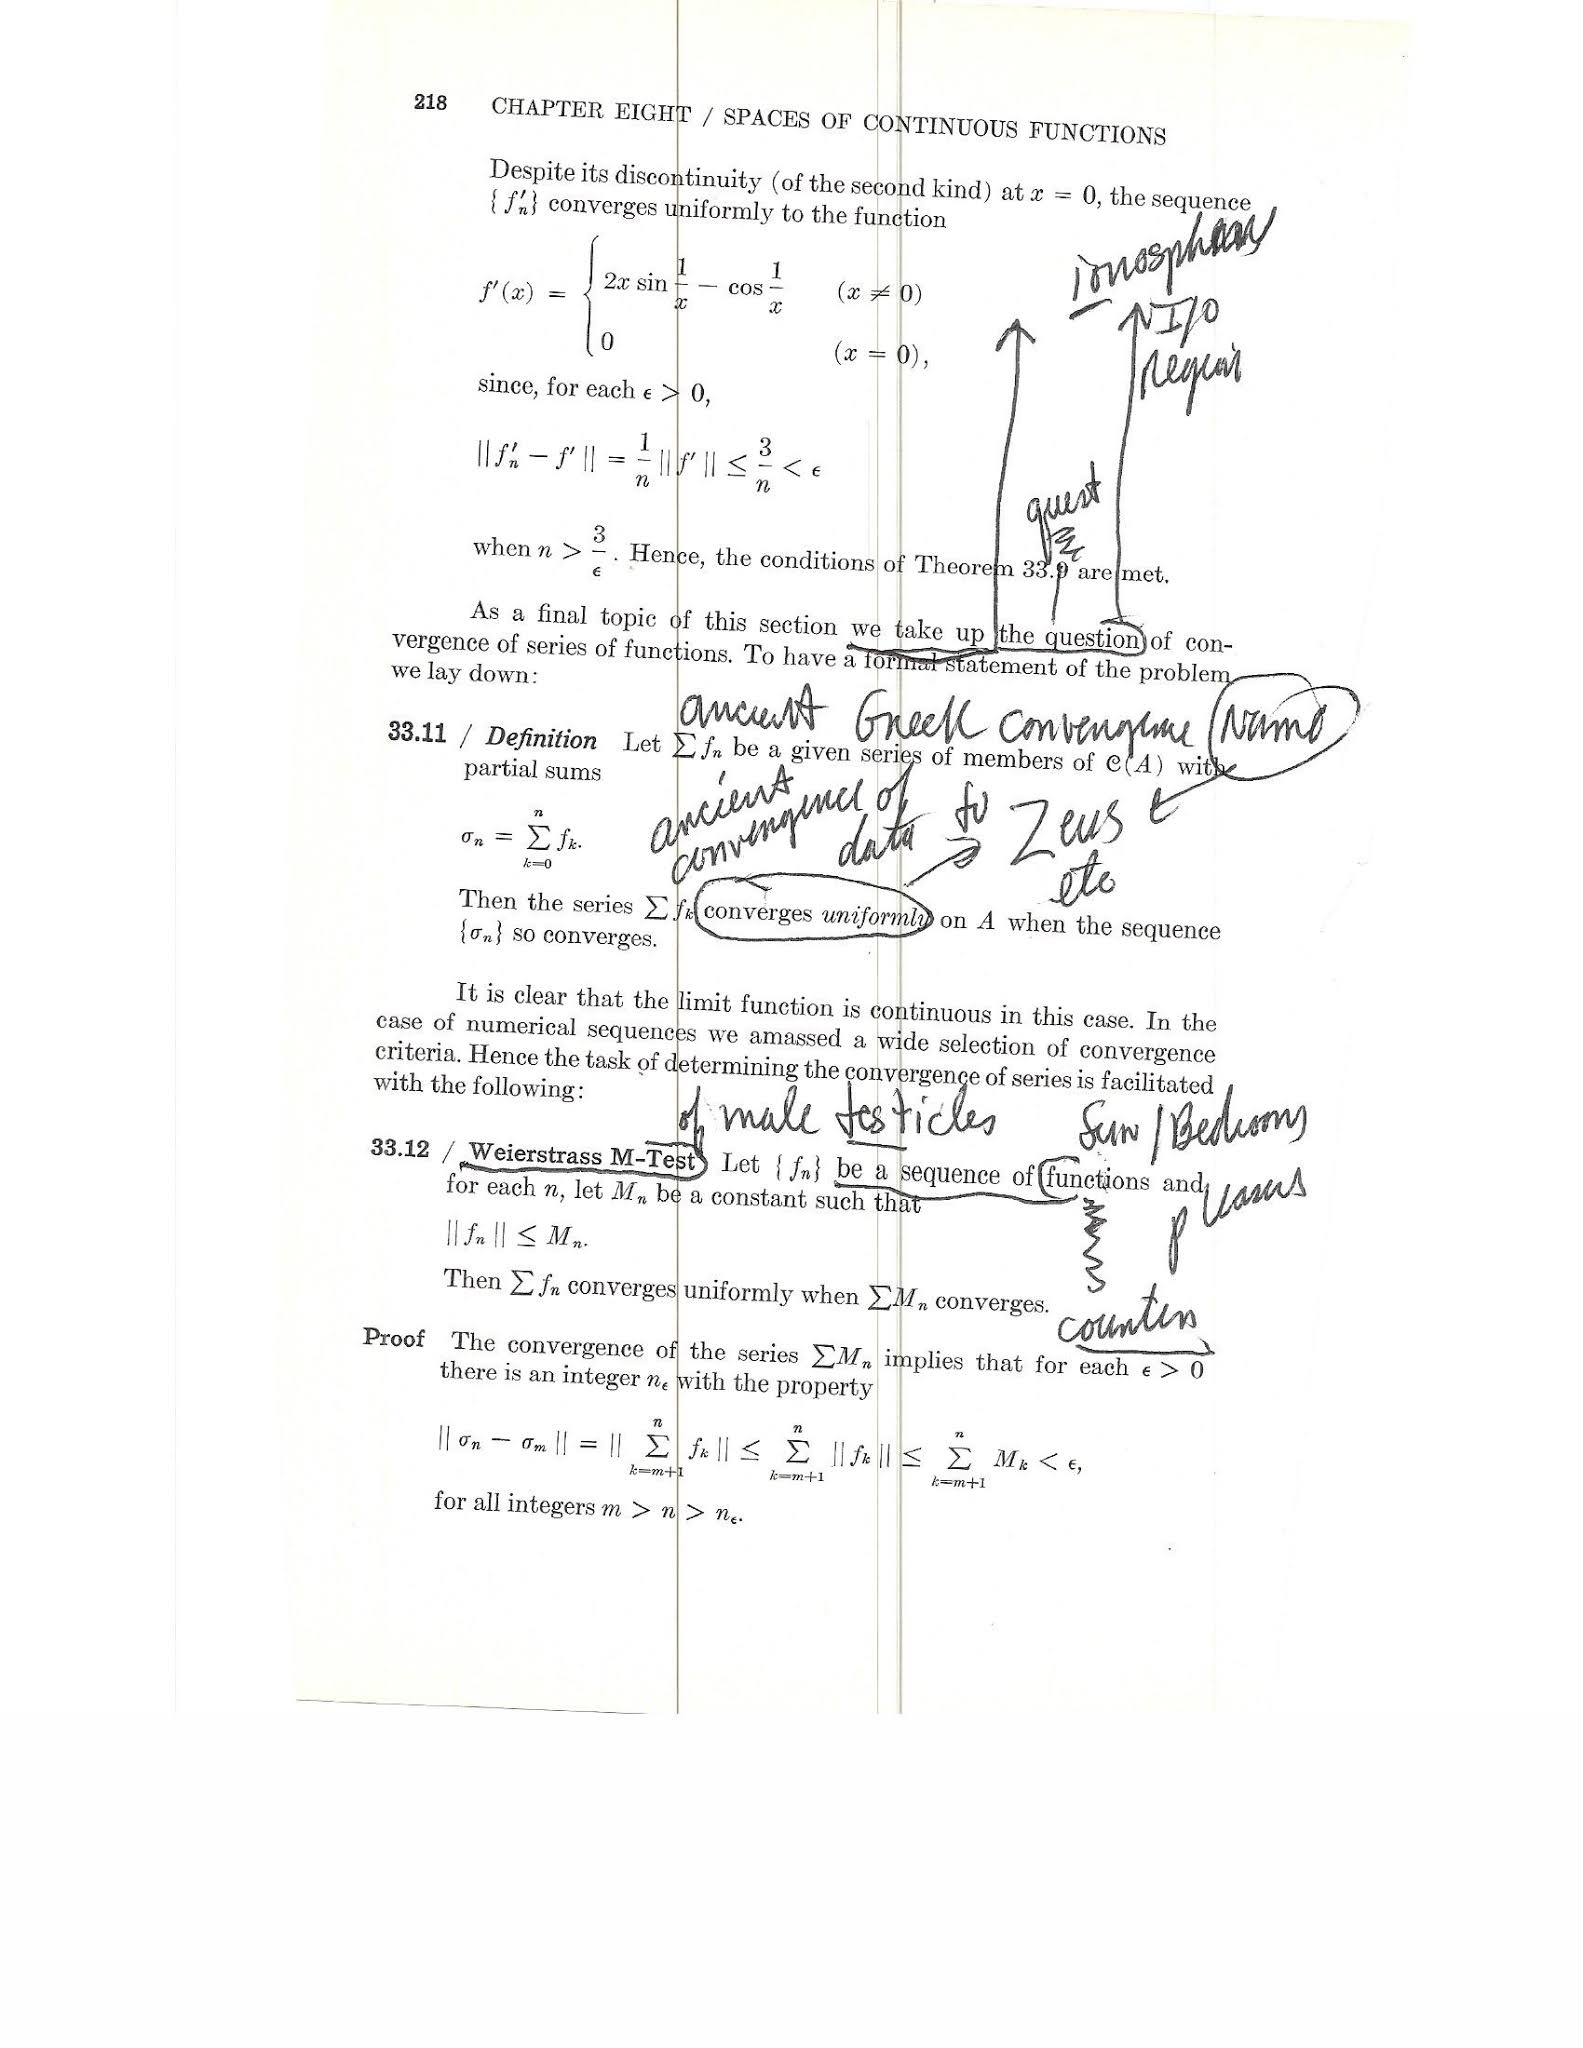 218 CHAPTER EIGHT / SPACES OF CONTINUOUS FUNCTIONS
Despite its discontinuity (of the second kind) at x = 0, the sequence
{f′ₙ} converges uniformly to the function
f′(x) = { 2x sin 1/x − cos 1/x (x ≠ 0)
0 (x = 0),
I/O
since, for each ϵ > 0,
|| f′ₙ − f′ || = 1/n || f′ || ≤ 3/n < ϵ
quest
when n > 3/ϵ . Hence, the conditions of Theorem 33.9 are met.
As a final topic of this section we take up the question of con-
vergence of series of functions. To have a formal statement of the problem
we lay down:
ancient Greek convergence Name
33.11 / Definition Let ∑ fₙ be a given series of members of C(A) with
partial sums
ancient
convergence of
data to Zeus
etc
σₙ = ∑ₖ₌₀ⁿ fₖ.
Then the series ∑ fₖ converges uniformly on A when the sequence
{σₙ} so converges.
It is clear that the limit function is continuous in this case. In the
case of numerical sequences we amassed a wide selection of convergence
criteria. Hence the task of determining the convergence of series is facilitated
with the following:
of male testicles
33.12 / Weierstrass M-Test Let {fₙ} be a sequence of functions and
for each n, let Mₙ be a constant such that
|| fₙ || ≤ Mₙ.
Then ∑ fₙ converges uniformly when ∑Mₙ converges.
Proof The convergence of the series ∑Mₙ implies that for each ϵ > 0
there is an integer n_ϵ with the property
|| σₙ − σₘ || = || ∑ₖ₌ₘ₊₁ⁿ fₖ || ≤ ∑ₖ₌ₘ₊₁ⁿ || fₖ || ≤ ∑ₖ₌ₘ₊₁ⁿ Mₖ < ϵ,
for all integers m > n > n_ϵ.